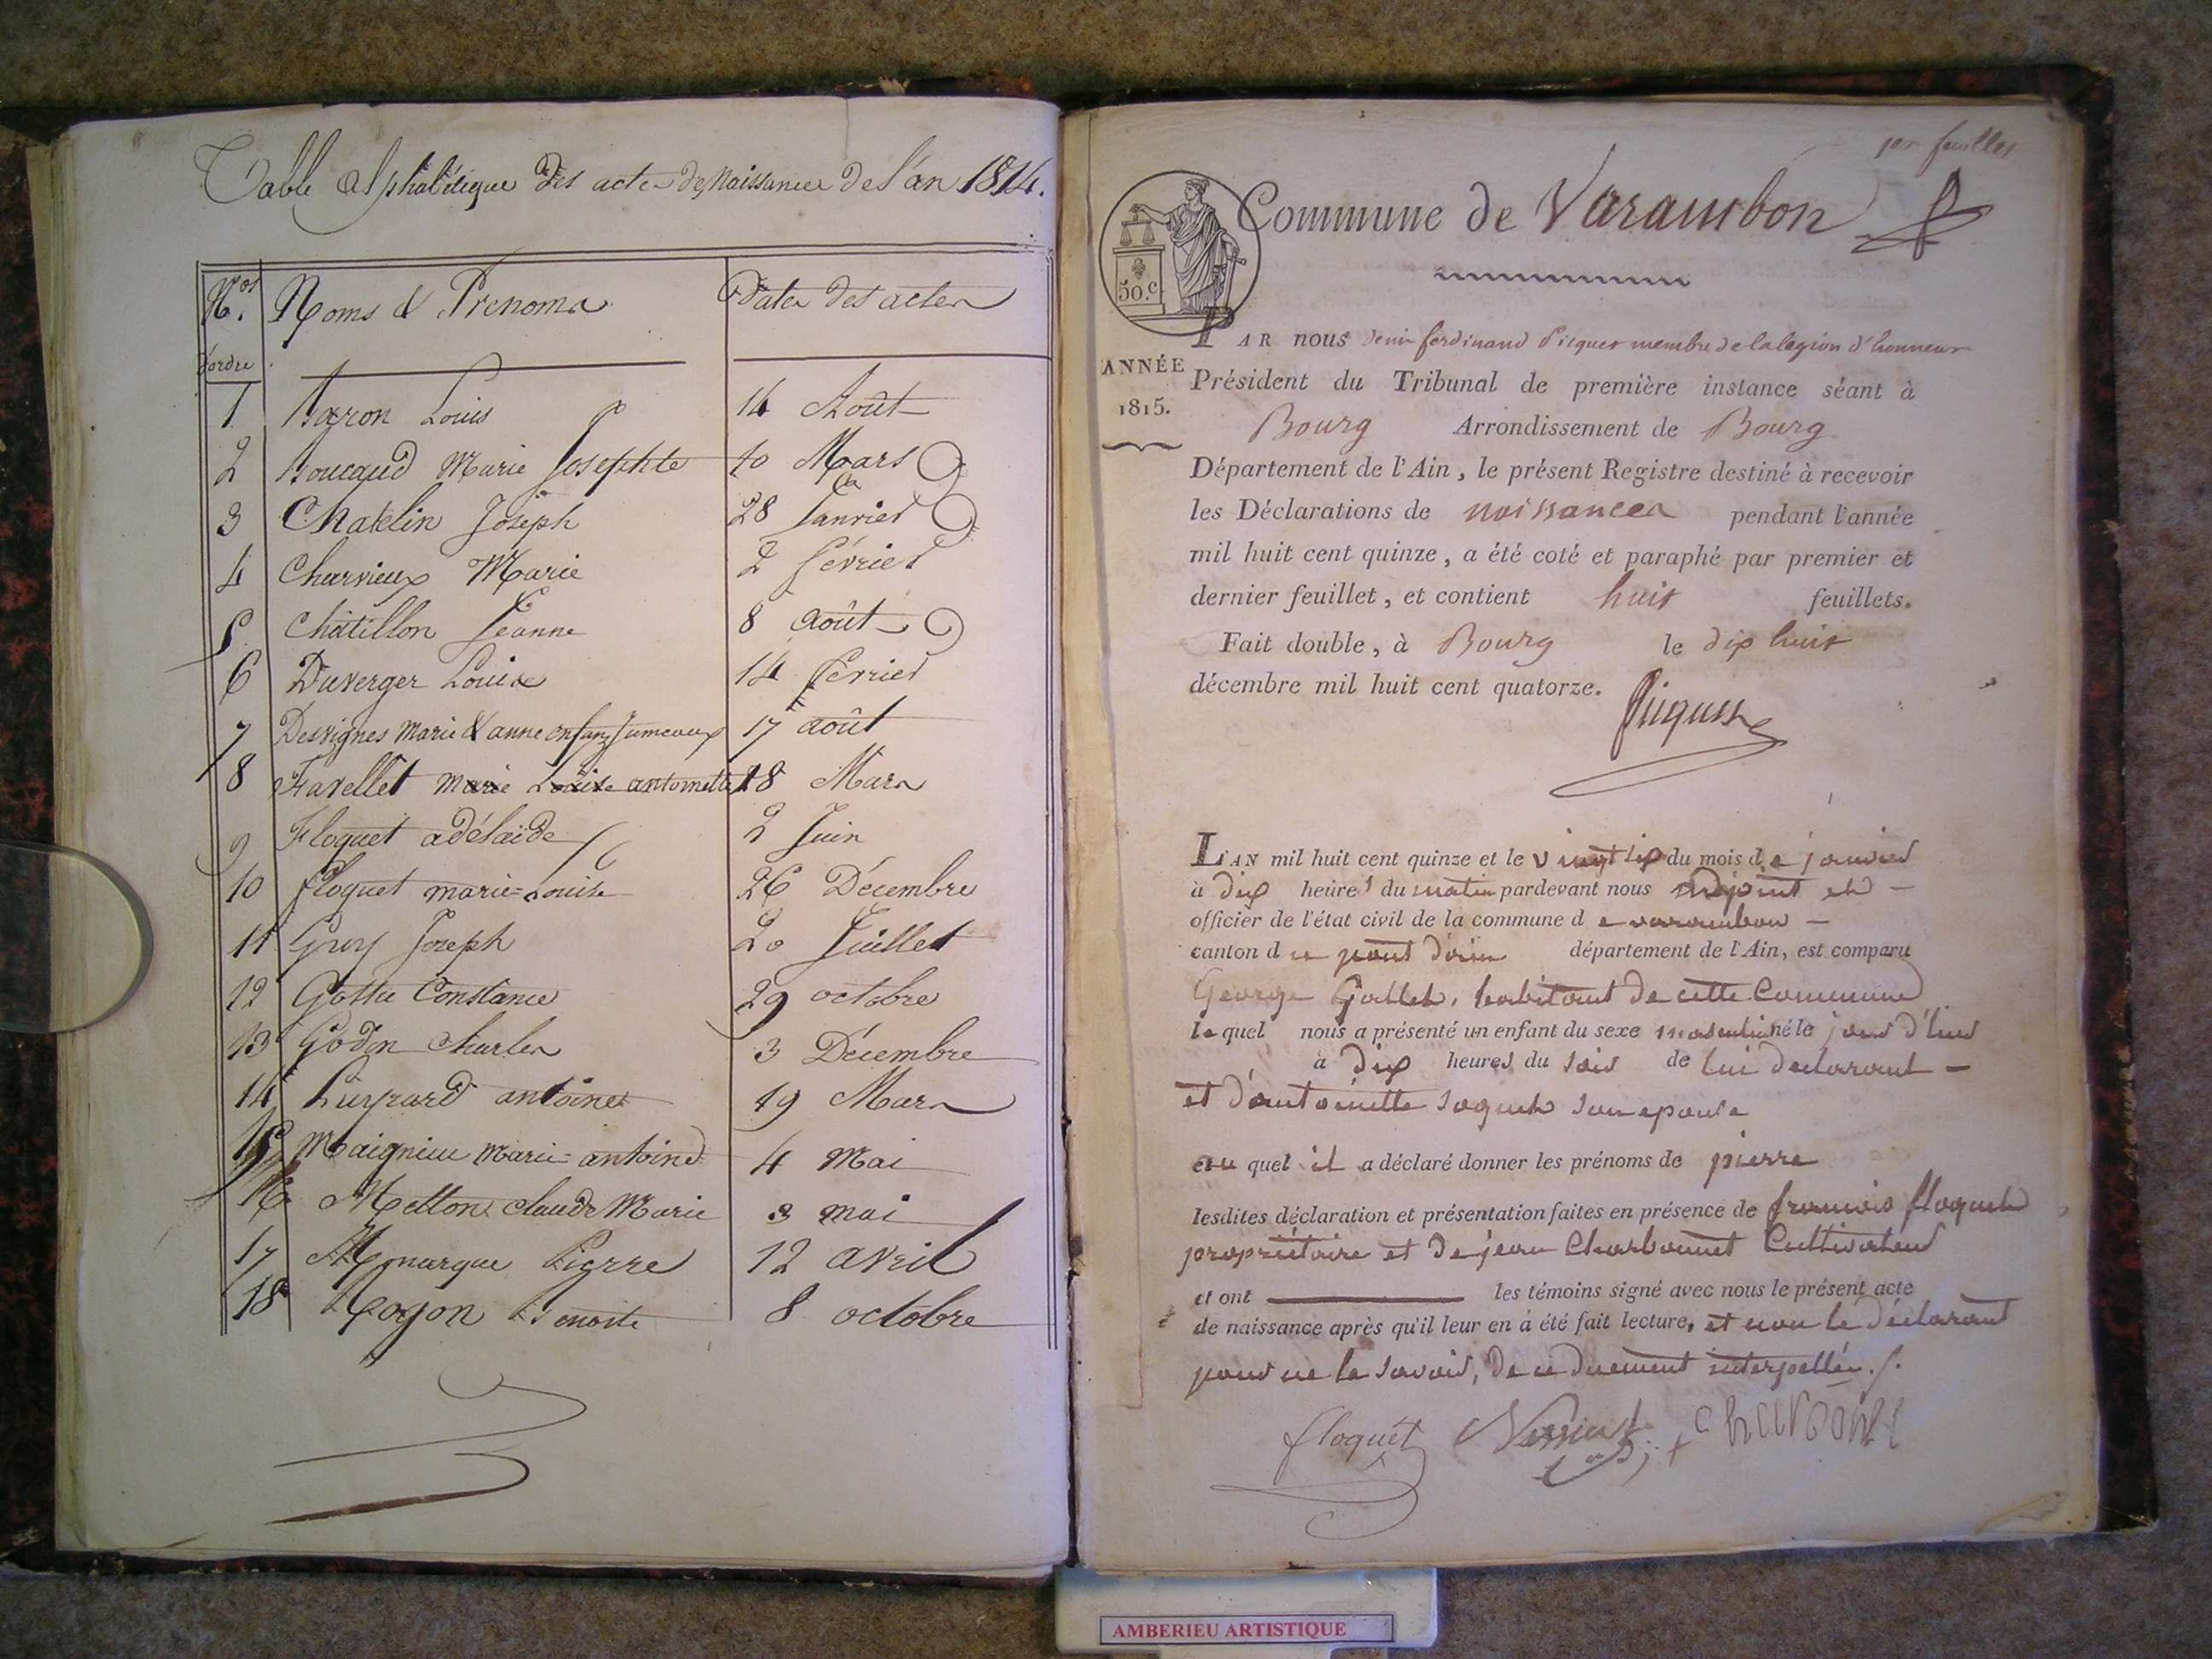 Table Alphabétique des actes de Naissance de l'an 1814.
Nos d'ordre Noms & Prenoms Dates des actes
1 Baron Louis 14 Août
2 Boucaud Marie Josephte 10 Mars
3 Chatelin Joseph 28 Janvier
4 Charvieux Marie 2 février
5 Châtillon Jeanne 8 août
6 Duverger Louise 14 février
7 Desvignes Marie & anne enfans Jumeaux 17 août
8 Favellet Marie Louise antoinette 18 Mars
9 Floquet adélaïde 2 Juin
10 floquet marie=Louise 26 Décembre
11 Guy Joseph 20 Juillet
12 Constance 29 octobre
13 Godon Charles 3 Décembre
14 antoine 19 Mars
15 Maignieu Marie=antoine 4 Mai
16 Metton Claude Marie 3 mai
17 Monarque Pierre 12 avril
18 Benoite 8 octobre
1er feuillet
Commune de Varambon
50.c
PAR nous denis ferdinand Picquet membre de la legion d'honneur
ANNÉE
1815.
Président du Tribunal de première instance séant à
Bourg Arrondissement de Bourg
Département de l'Ain, le présent Registre destiné à recevoir
les Déclarations de naissances pendant l'année
mil huit cent quinze, a été coté et paraphé par premier et
dernier feuillet, et contient huit feuillets.
Fait double, à Bourg le dix huit
décembre mil huit cent quatorze.
Picquet
L'AN mil huit cent quinze et le du mois de janvier
à dix heures du matin pardevant nous adjoint et
officier de l'état civil de la commune de varambon
canton du pont d'ain département de l'Ain, est comparu
George Gallet, habitant de cette Commune
lequel nous a présenté un enfant du sexe masculin né le jour d'hier
à dix heures du soir de lui declarant
et d'antoinette son epouse
au quel il a déclaré donner les prénoms de pierre
lesdites déclaration et présentation faites en présence de francois floquet
propriétaire et de jean Charbonnet Cultivateur
et ont les témoins signé avec nous le présent acte
de naissance après qu'il leur en a été fait lecture, et non le déclarant
pour ne le savoir, de ce duement interpellé.
floquet
AMBERIEU ARTISTIQUE